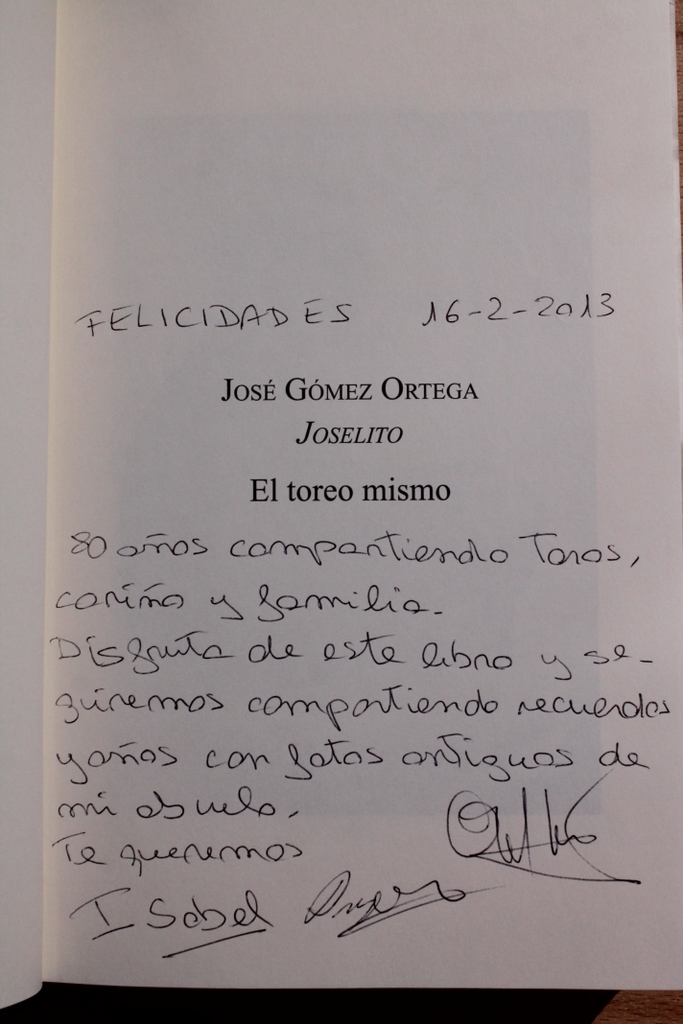 FELICIDADES 16-2-2013
JOSÉ GÓMEZ ORTEGA
JOSELITO
El toreo mismo
80 años compartiendo Toros,
cariño y familia.
Disfruta de este libro y se-
guiremos compartiendo recuerdos
y años con fotos antiguas de
mi abuelo.
Te queremos
Isabel